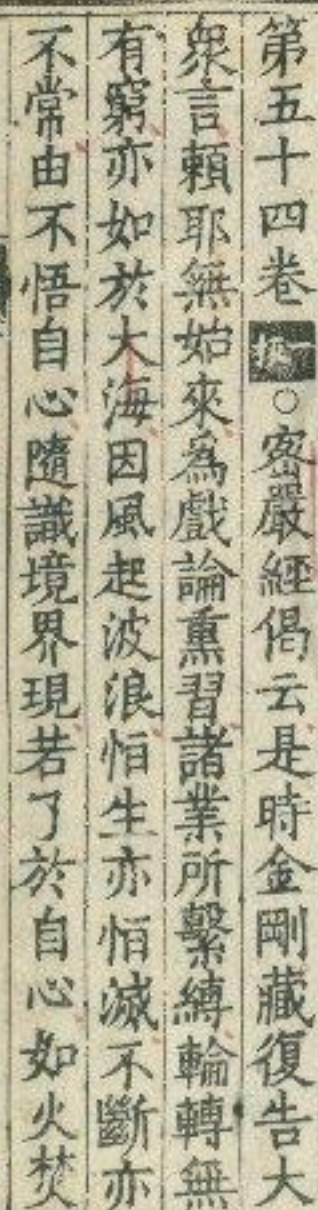 第五十四卷 一張○密嚴經偈云是時金剛藏復告大
衆言賴耶無始來爲戲論熏習諸業所繫縛輪轉無
有窮亦如於大海因風起波浪恒生亦恒滅不斷亦
不常由不悟自心隨識境界現若了於自心如火焚